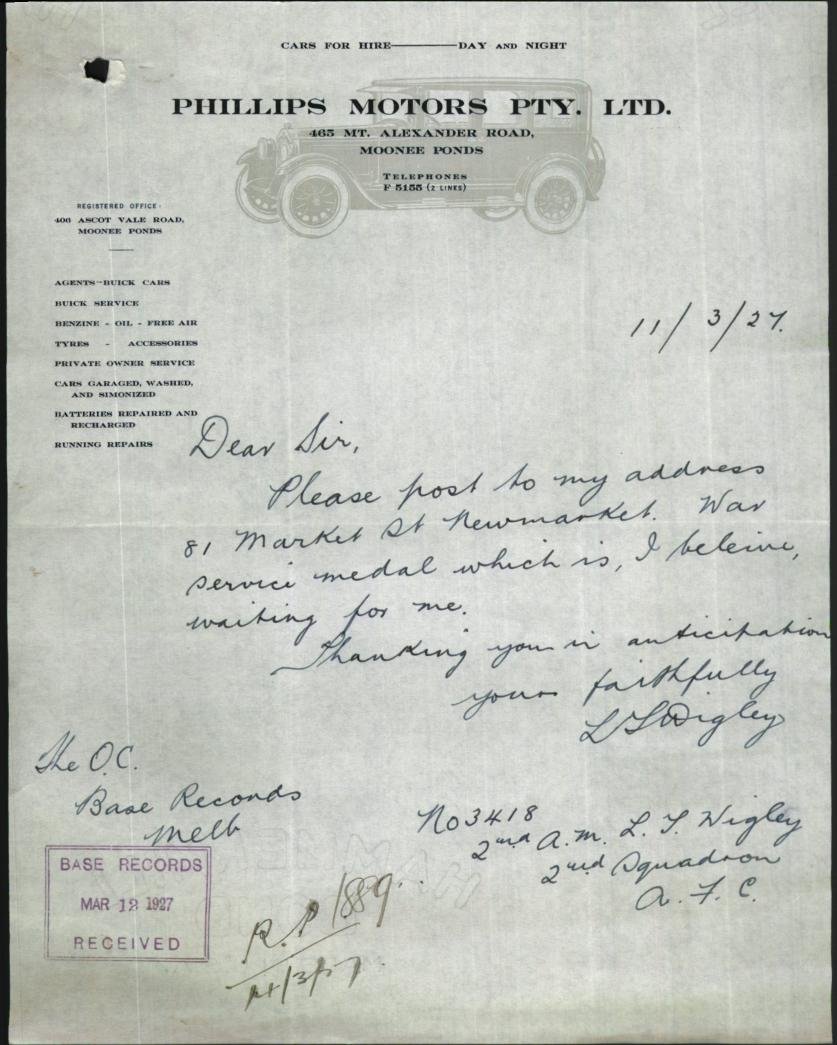 CARS FOR HIRE————DAY AND NIGHT
PHILLIPS MOTORS PTY. LTD.
465 MT. ALEXANDER ROAD,
MOONEE PONDS
TELEPHONES
F 5155 (2 LINES)
REGISTERED OFFICE:
406 ASCOT VALE ROAD,
MOONEE PONDS
AGENTS-BUICK CARS
BUICK SERVICE
BENZINE - OIL - FREE AIR
TYRES - ACCESSORIES
PRIVATE OWNER SERVICE
CARS GARAGED, WASHED,
AND SIMONIZED
BATTERIES REPAIRED AND
RECHARGED
RUNNING REPAIRS
11/3/27.
Dear Sir,
Please post to my address
81 Market St Newmarket. War
service medal which is, I beleive,
waiting for me.
Thanking you in anticipation
yours faithfully
L T Wigley
The O.C.
Base Records
Melb
No 3418
2nd A.M. L. T. Wigley
2nd Squadron
A. F. C.
BASE RECORDS
MAR 12 1927
RECEIVED
R.P 1889.
/3/27